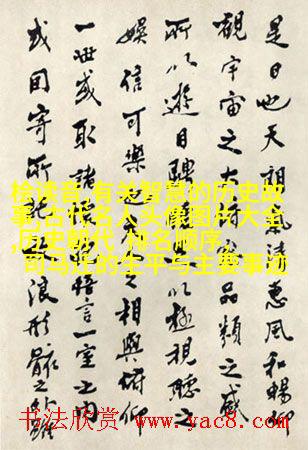 是日也天朗氣清惠風和暢仰
觀宇宙之大品類之盛
所以遊目騁以極視聽之
娛信可樂之相與俯仰
一世或取諸悟言一室之內
或因寄所託浪形骸之外雖
桧读音,有关智慧的历史故
事,古代名人头像图片大全
,历史朝代 排名顺序,
司马迁的生平与主要事迹
书法欣赏 www.yac8.com